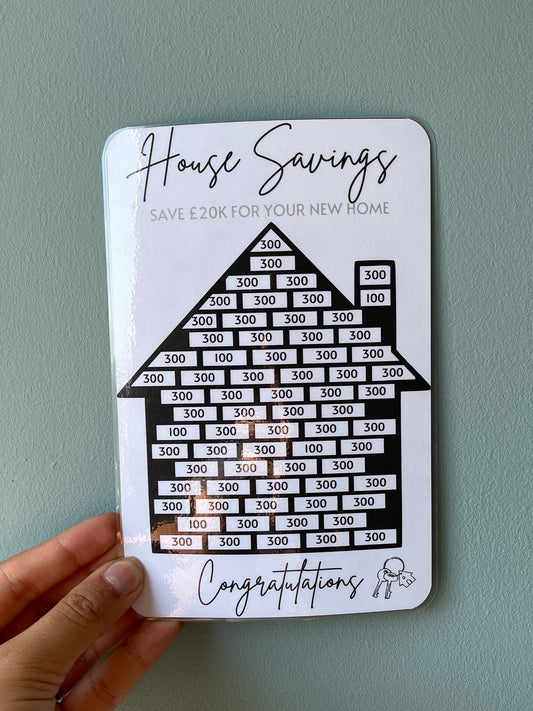 House Savings
SAVE £20K FOR YOUR NEW HOME
300
300
300
300 300
300 300 300 100
300 300 300 300
300 300 300 300
300 100 300 300 300
300 300 300 300 300 300
300 300 300 300 300
300 300 300 300
100 300 300 300 300
300 300 300 100 300
300 300 300 300
300 300 300 300 300
300 300 300 300 300
100 300 300 300
300 300 300 300 300
Congratulations